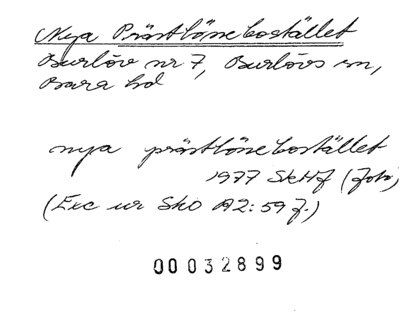 Nya Prästlönebostället
Burlöv nr 7, Burlövs sn,
Bara hd
nya prästlönebostället
1977 SkHf (foto)
(Exc ur Sko A2:59 f.)
00032899